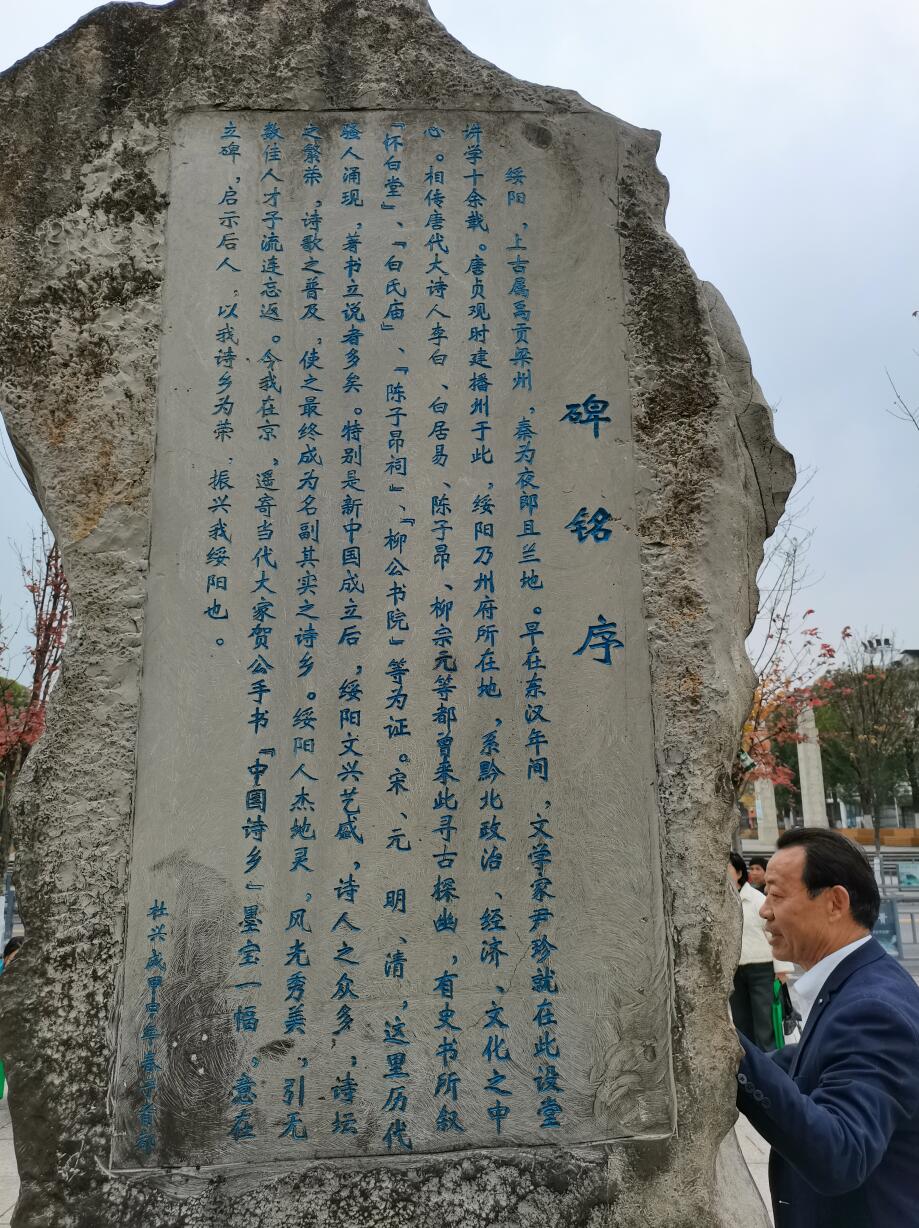 碑铭序
绥阳，上古属禹贡梁州，秦为夜郎且兰地。早在东汉年间，文学家尹珍就在此设堂
讲学十余载。唐贞观时建播州于此，绥阳乃州府所在地，系黔北政治、经济、文化之中
心。相传唐代大诗人李白、白居易、陈子昂、柳宗元等都曾来此寻古探幽，有史书所叙
『怀白堂』、『白氏庙』、『陈子昂祠』、『柳公书院』等为证。宋、元 明、清，这里历代
骚人涌现，著书立说者多矣。特别是新中国成立后，绥阳文兴艺盛，诗人之众多，诗坛
之繁荣，诗歌之普及，使之最终成为名副其实之诗乡。绥阳人杰地灵，风光秀美，引无
数佳人才子流连忘返。今我在京，遥寄当代大家贺公手书『中国诗乡』墨宝一幅，意在
立碑，启示后人，以我诗乡为荣，振兴我绥阳也。
杜兴成甲申年春于首都